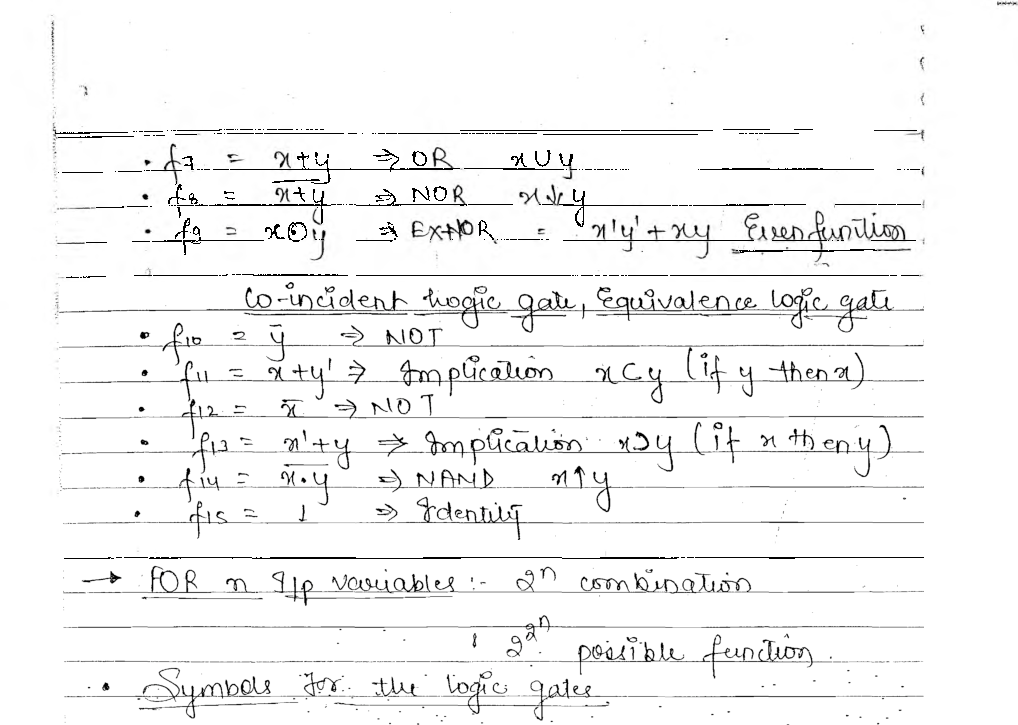 • f7 = x+y ⇒ OR x∪y
• f8 = \overline{x+y} ⇒ NOR x↓y
• f9 = x⊙y ⇒ EX-NOR = x'y' + xy Even function
Co-incident Logic gate, Equivalence logic gate
• f10 = ȳ ⇒ NOT
• f11 = x+y' ⇒ Implication x⊂y (if y then x)
• f12 = x̄ ⇒ NOT
• f13 = x'+y ⇒ Implication x⊃y (if x then y)
• f14 = \overline{x.y} ⇒ NAND x↑y
• f15 = 1 ⇒ Identity
→ FOR n I/p variables :- 2^n combination
2^{2^n} possible function.
• Symbols for the logic gates